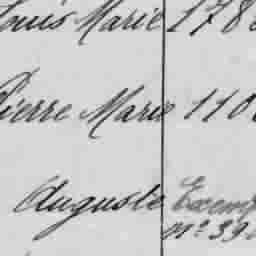 Louis Marie 178
Pierre Marie 110
Auguste Exemp
nº 39